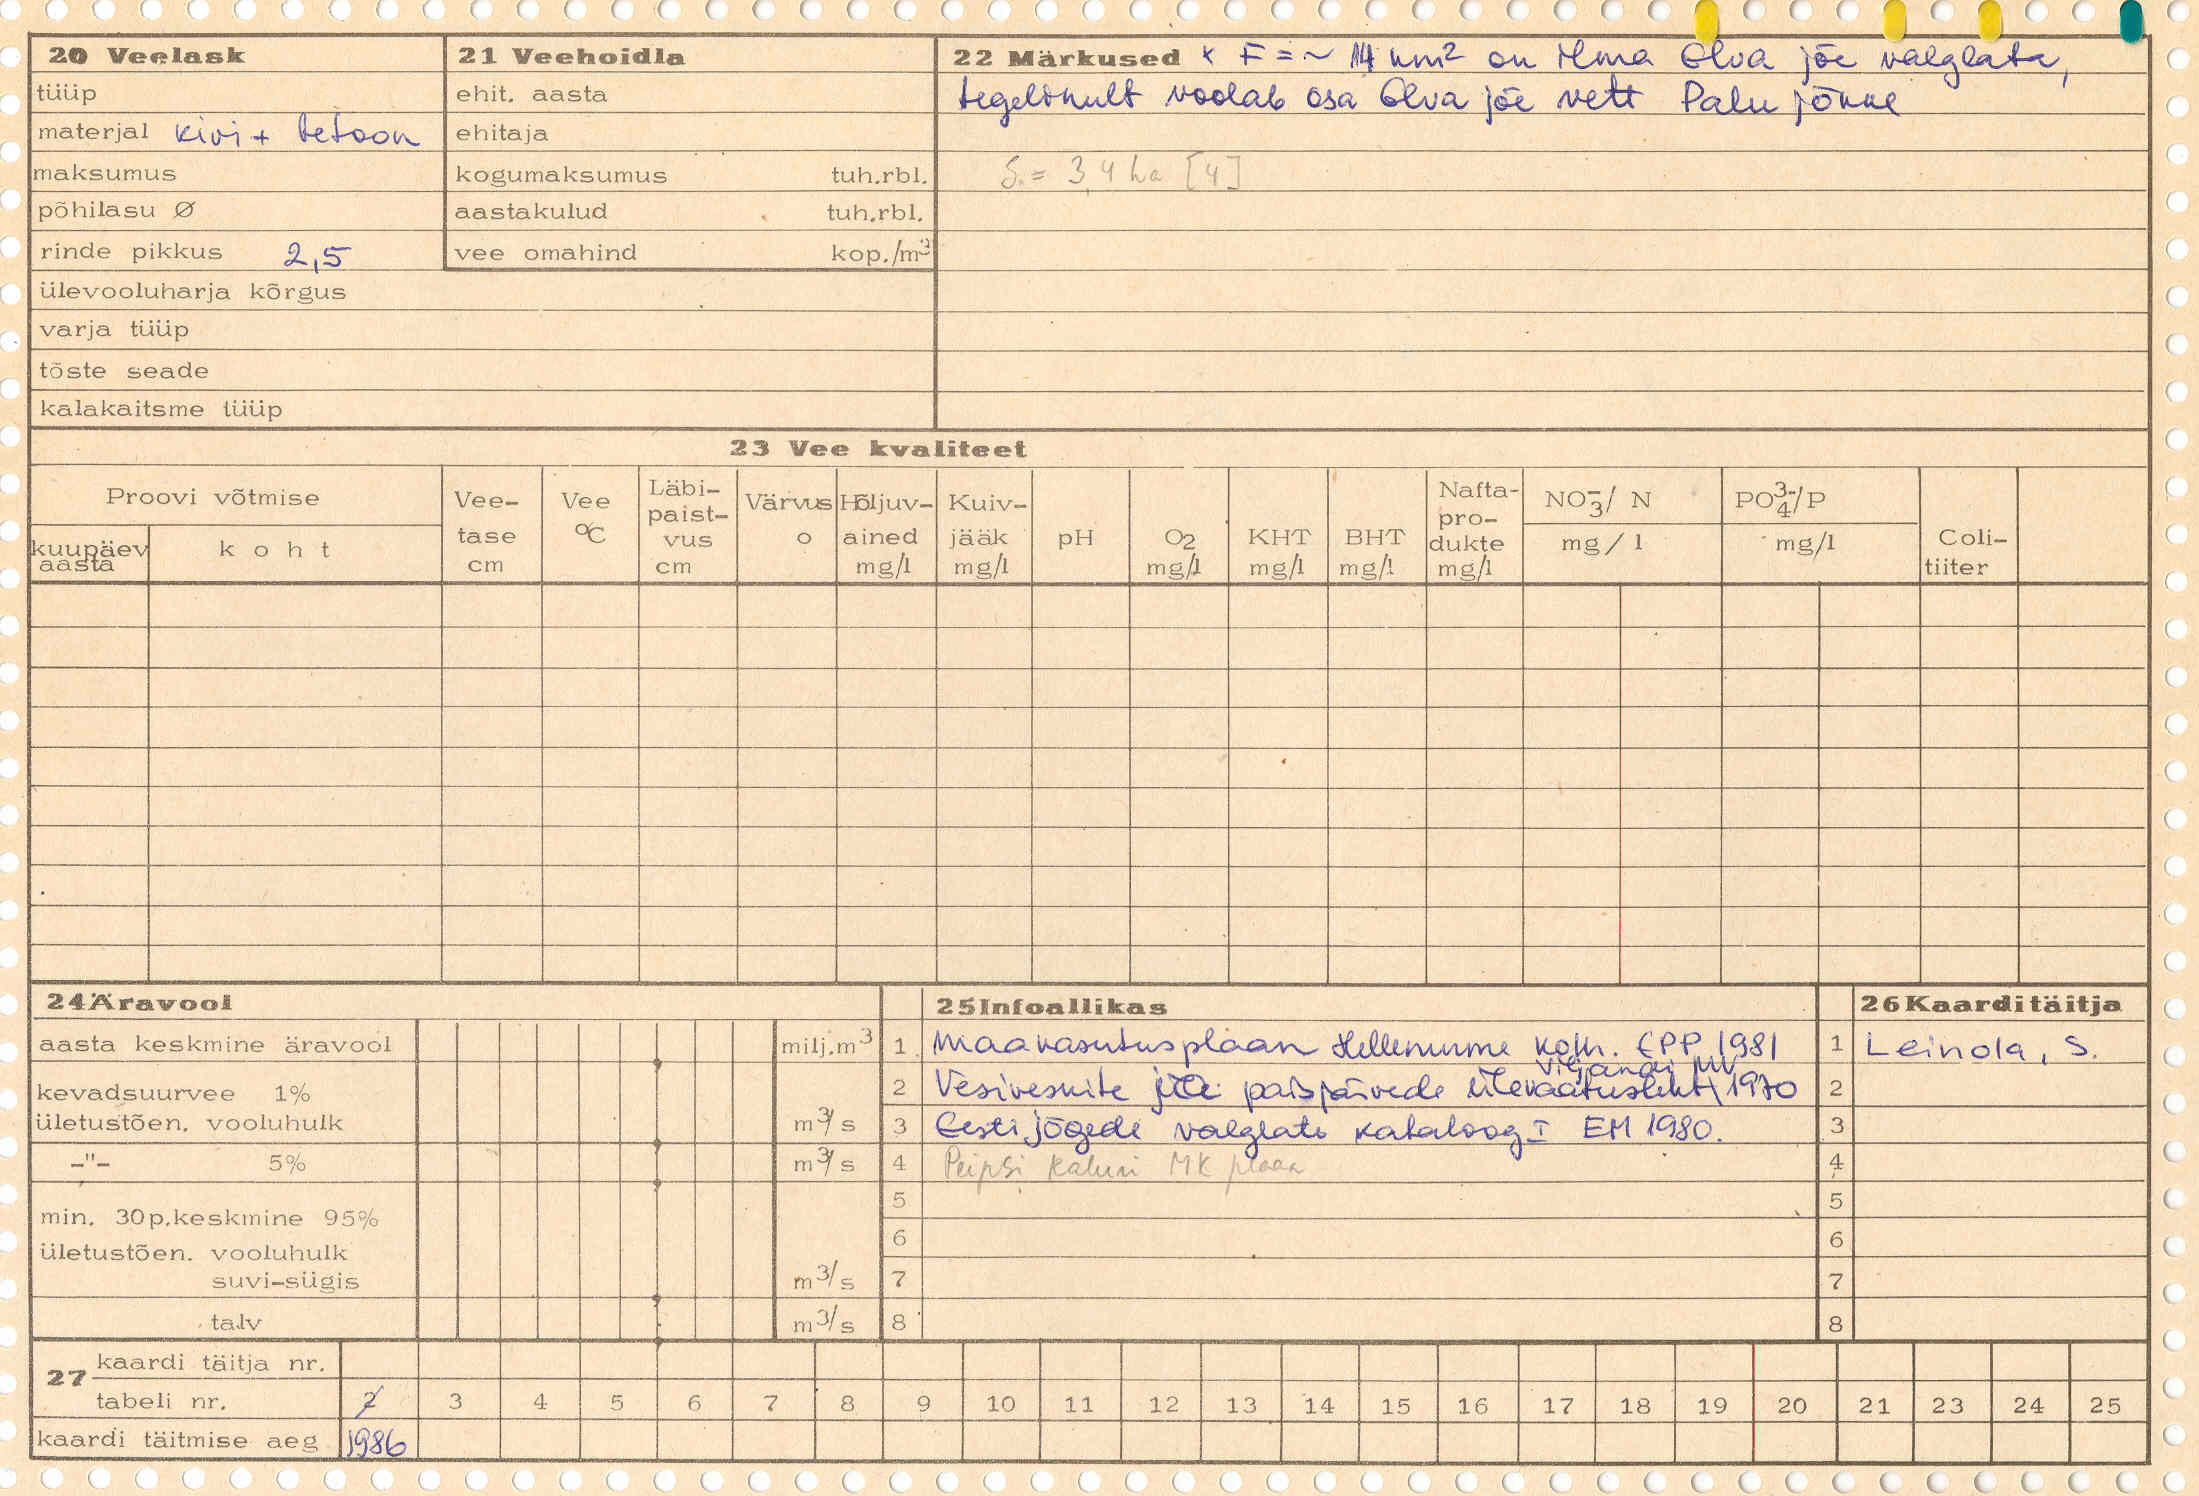 20 Veelask
tüüp
materjal kivi + betoon
maksumus
põhilasu Ø
rinde pikkus 2,5
ülevooluharja kõrgus
varja tüüp
tõste seade
kalakaitsme tüüp
21 Veehoidla
ehit. aasta
ehitaja
kogumaksumus tuh.rbl.
aastakulud tuh.rbl.
vee omahind kop./m³
22 Märkused x F = ~ 14 km² on ilma Elva jõe valglata,
tegelikult voolab osa Elva jõe vett Palu jõkke
S = 3,4 ha [4]
23 Vee kvaliteet
Proovi võtmise
kuupäev aasta
koht
Vee-
tase
cm
Vee
°C
Läbi-
paist-
vus
cm
Värvus
o
Hõljuv-
ained
mg/l
Kuiv-
jääk
mg/l
pH
O2
mg/l
KHT
mg/l
BHT
mg/l
Nafta-
pro-
dukte
mg/l
NO3⁻/ N
mg/l
PO4³⁻/P
mg/l
Coli-
tiiter
24 Äravool
aasta keskmine äravool milj.m³
kevadsuurvee 1%
ületustõen. vooluhulk m³/s
-"- 5% m³/s
min. 30p.keskmine 95%
ületustõen. vooluhulk
suvi-sügis m³/s
talv m³/s
25 Infoallikas
1 Maakasutusplaan Hellenurme kolh. EPP 1981
Viljandi MV
2 Vesiveskite ja paisjärvede ülevaatusleht 1970
3 Eesti jõgede valglate kataloog I EM 1980.
4 Peipsi kaluri MK plaan
5
6
7
8
26 Kaardi täitja
1 Leinola, S.
2
3
4
5
6
7
8
27 kaardi täitja nr.
tabeli nr. 2 3 4 5 6 7 8 9 10 11 12 13 14 15 16 17 18 19 20 21 23 24 25
kaardi täitmise aeg 1986